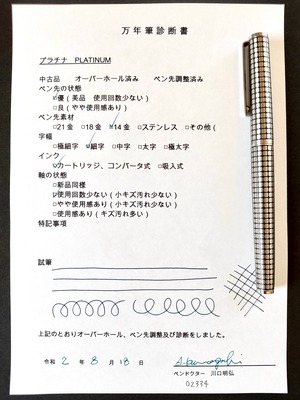 万年筆診断書
プラチナ PLATINUM
中古品 オーバーホール済み ペン先調整済み
ペン先の状態
☑優(美品 使用回数少ない)
□良(やや使用感あり)
ペン先素材
□21金 □18金 ☑14金 □ステンレス □その他(
字幅
□極細字 ☑細字 □中字 □太字 □極太字
インク
☑カートリッジ、コンバータ式 □吸入式
軸の状態
□新品同様
☑使用回数少ない(小キズ汚れ少ない)
□やや使用感あり(小キズ汚れ少ない)
□使用感あり(キズ汚れ多い)
特記事項
試筆
上記のとおりオーバーホール、ペン先調整及び診断をしました。
令和 2 年 8 月 18 日
ペンドクター 川口明弘
02334